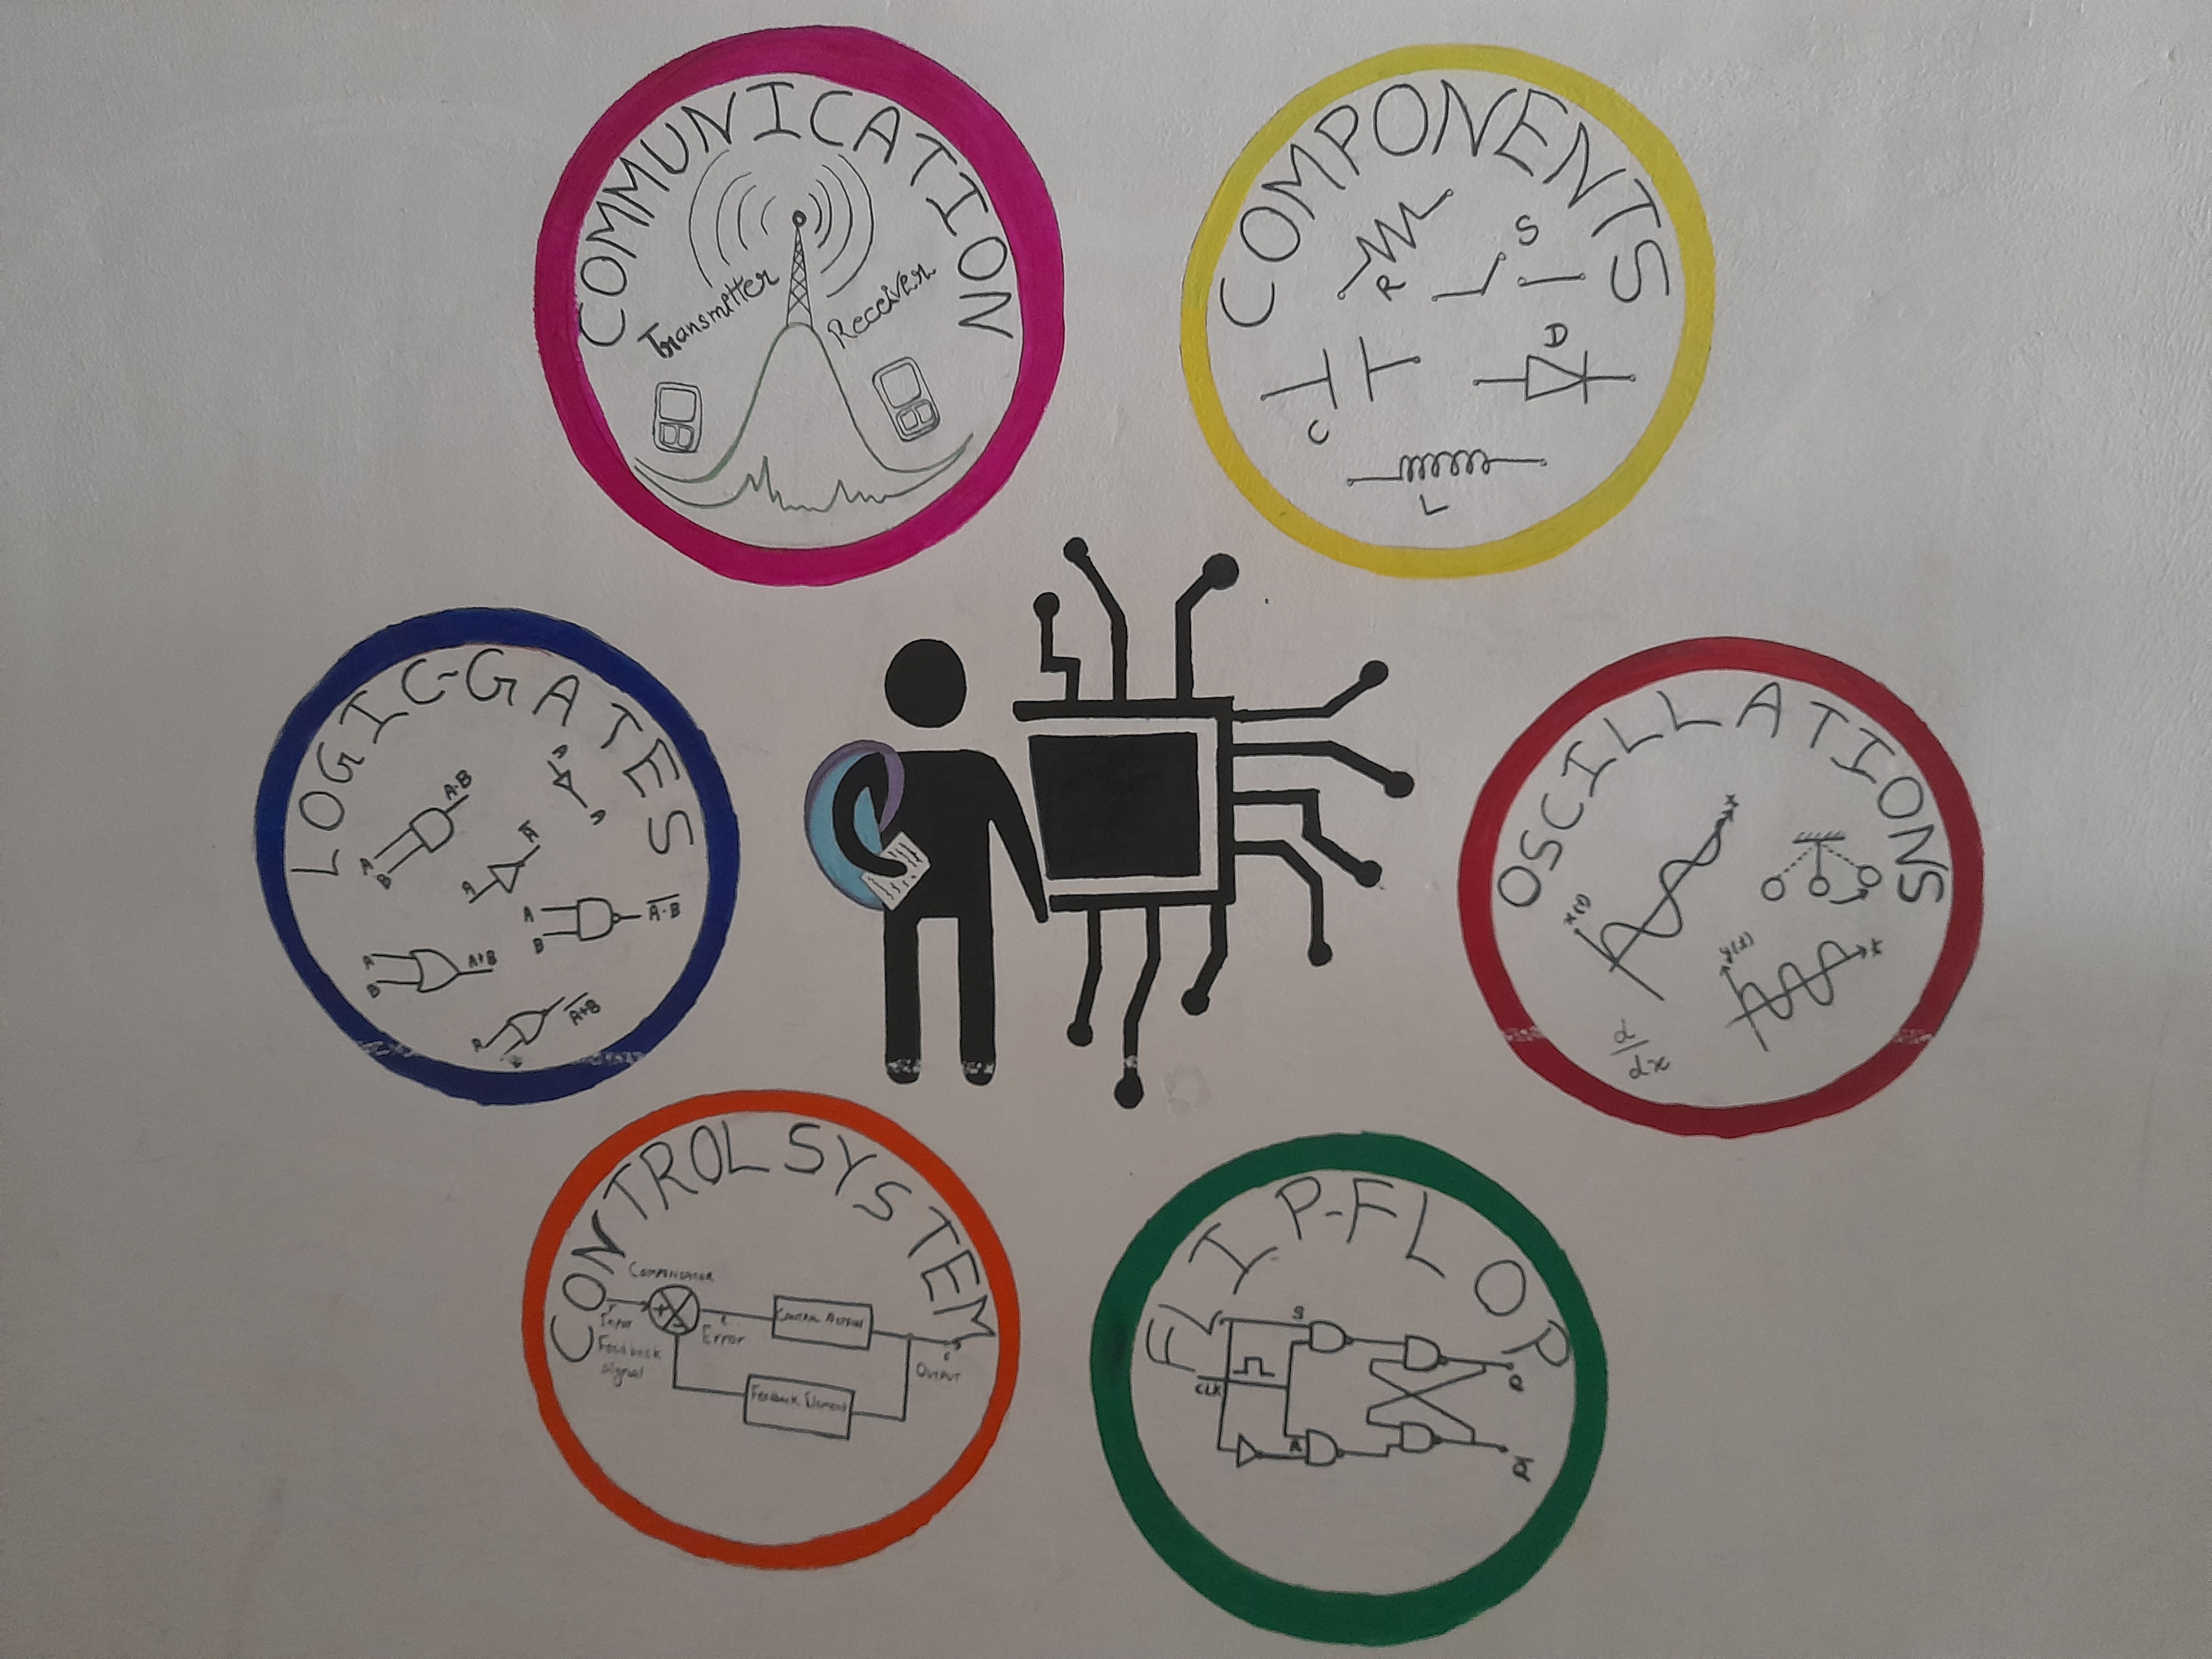 COMMUNICATION
Transmitter
Receiver
COMPONENTS
R
S
C
D
L
LOGIC-GATES
A·B
A
B
A̅
A
A
B
A̅·̅B̅
A
B
A+B
A̅+̅B̅
OSCILLATIONS
x(t)
y(t)
t
d/dx
CONTROL SYSTEM
Input
Feedback
signal
Error
CONTROL ACTION
OUTPUT
Feedback Element
FLIP-FLOP
S
CLK
R
Q
Q̅